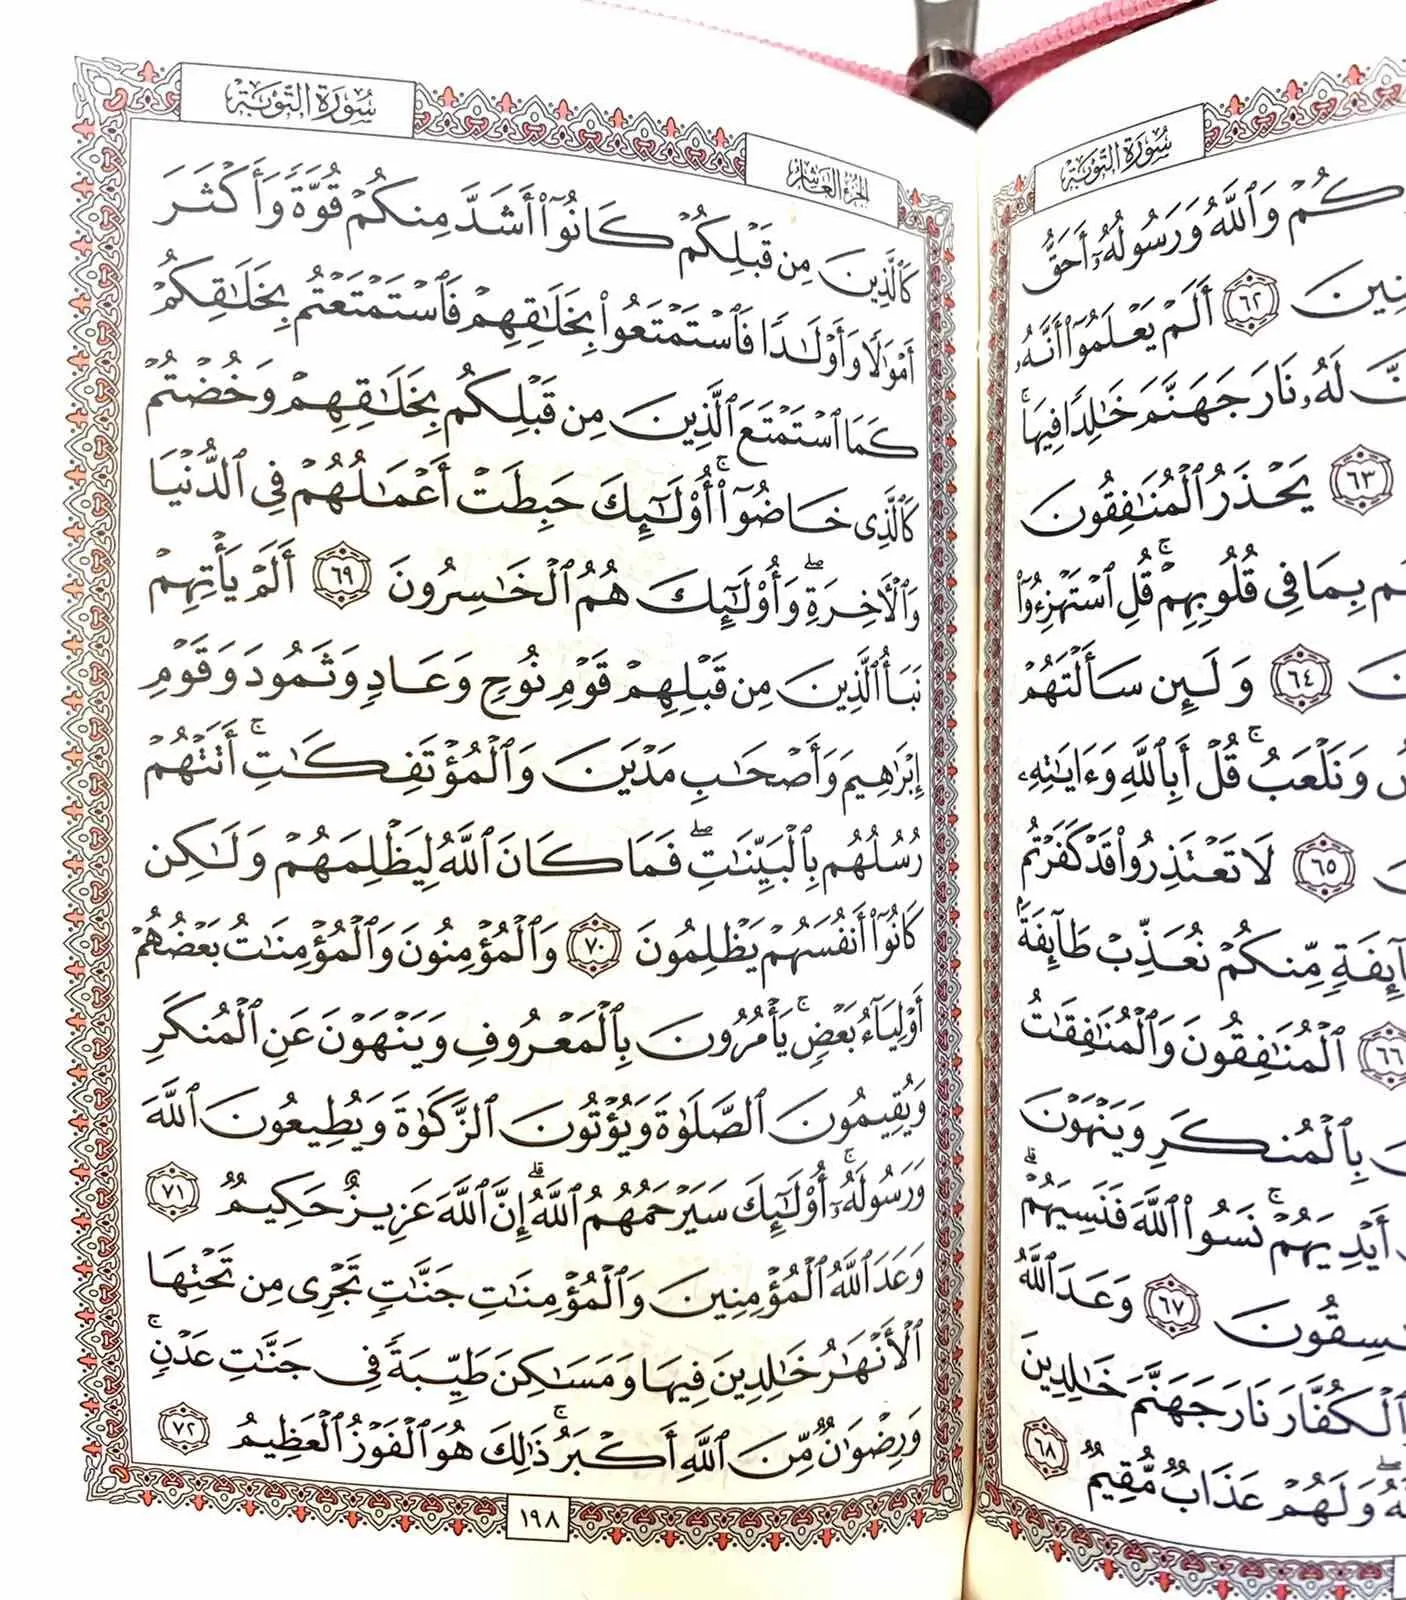 سُورَةُ التَّوْبَةِ
وَرَسُولُهُۥٓ أَحَقُّ
كُمْ وَٱللَّهُ
نِينَ ٦٢ أَلَمْ يَعْلَمُوٓا۟ أَنَّهُۥ
لَهُۥ نَارَ جَهَنَّمَ خَٰلِدًا فِيهَا ۚ
٦٣ يَحْذَرُ ٱلْمُنَٰفِقُونَ
بِمَا فِى قُلُوبِهِمْ ۚ قُلِ ٱسْتَهْزِءُوٓا۟
٦٤ وَلَئِن سَأَلْتَهُمْ
وَنَلْعَبُ ۚ قُلْ أَبِٱللَّهِ وَءَايَٰتِهِۦ
٦٥ لَا تَعْتَذِرُوا۟ قَدْ كَفَرْتُم
مِّنكُمْ نُعَذِّبْ طَآئِفَةًۢ
٦٦ ٱلْمُنَٰفِقُونَ وَٱلْمُنَٰفِقَٰتُ
بِٱلْمُنكَرِ وَيَنْهَوْنَ
أَيْدِيَهُمْ ۚ نَسُوا۟ ٱللَّهَ فَنَسِيَهُمْ ۗ
سِقُونَ ٦٧ وَعَدَ ٱللَّهُ
ٱلْكُفَّارَ نَارَ جَهَنَّمَ خَٰلِدِينَ
وَلَهُمْ عَذَابٌ مُّقِيمٌ ٦٨
الجزء العاشر
سُورَةُ التَّوْبَةِ
كَٱلَّذِينَ مِن قَبْلِكُمْ كَانُوٓا۟ أَشَدَّ مِنكُمْ قُوَّةً وَأَكْثَرَ
أَمْوَٰلًا وَأَوْلَٰدًا فَٱسْتَمْتَعُوا۟ بِخَلَٰقِهِمْ فَٱسْتَمْتَعْتُم بِخَلَٰقِكُمْ
كَمَا ٱسْتَمْتَعَ ٱلَّذِينَ مِن قَبْلِكُم بِخَلَٰقِهِمْ وَخُضْتُمْ
كَٱلَّذِى خَاضُوٓا۟ ۚ أُو۟لَٰٓئِكَ حَبِطَتْ أَعْمَٰلُهُمْ فِى ٱلدُّنْيَا
وَٱلْءَاخِرَةِ ۖ وَأُو۟لَٰٓئِكَ هُمُ ٱلْخَٰسِرُونَ ٦٩ أَلَمْ يَأْتِهِمْ
نَبَأُ ٱلَّذِينَ مِن قَبْلِهِمْ قَوْمِ نُوحٍ وَعَادٍ وَثَمُودَ وَقَوْمِ
إِبْرَٰهِيمَ وَأَصْحَٰبِ مَدْيَنَ وَٱلْمُؤْتَفِكَٰتِ ۚ أَتَتْهُمْ
رُسُلُهُم بِٱلْبَيِّنَٰتِ ۖ فَمَا كَانَ ٱللَّهُ لِيَظْلِمَهُمْ وَلَٰكِن
كَانُوٓا۟ أَنفُسَهُمْ يَظْلِمُونَ ٧٠ وَٱلْمُؤْمِنُونَ وَٱلْمُؤْمِنَٰتُ بَعْضُهُمْ
أَوْلِيَآءُ بَعْضٍ ۚ يَأْمُرُونَ بِٱلْمَعْرُوفِ وَيَنْهَوْنَ عَنِ ٱلْمُنكَرِ
وَيُقِيمُونَ ٱلصَّلَوٰةَ وَيُؤْتُونَ ٱلزَّكَوٰةَ وَيُطِيعُونَ ٱللَّهَ
وَرَسُولَهُۥٓ ۚ أُو۟لَٰٓئِكَ سَيَرْحَمُهُمُ ٱللَّهُ ۗ إِنَّ ٱللَّهَ عَزِيزٌ حَكِيمٌ ٧١
وَعَدَ ٱللَّهُ ٱلْمُؤْمِنِينَ وَٱلْمُؤْمِنَٰتِ جَنَّٰتٍ تَجْرِى مِن تَحْتِهَا
ٱلْأَنْهَٰرُ خَٰلِدِينَ فِيهَا وَمَسَٰكِنَ طَيِّبَةً فِى جَنَّٰتِ عَدْنٍ ۚ
وَرِضْوَٰنٌ مِّنَ ٱللَّهِ أَكْبَرُ ۚ ذَٰلِكَ هُوَ ٱلْفَوْزُ ٱلْعَظِيمُ ٧٢
١٩٨